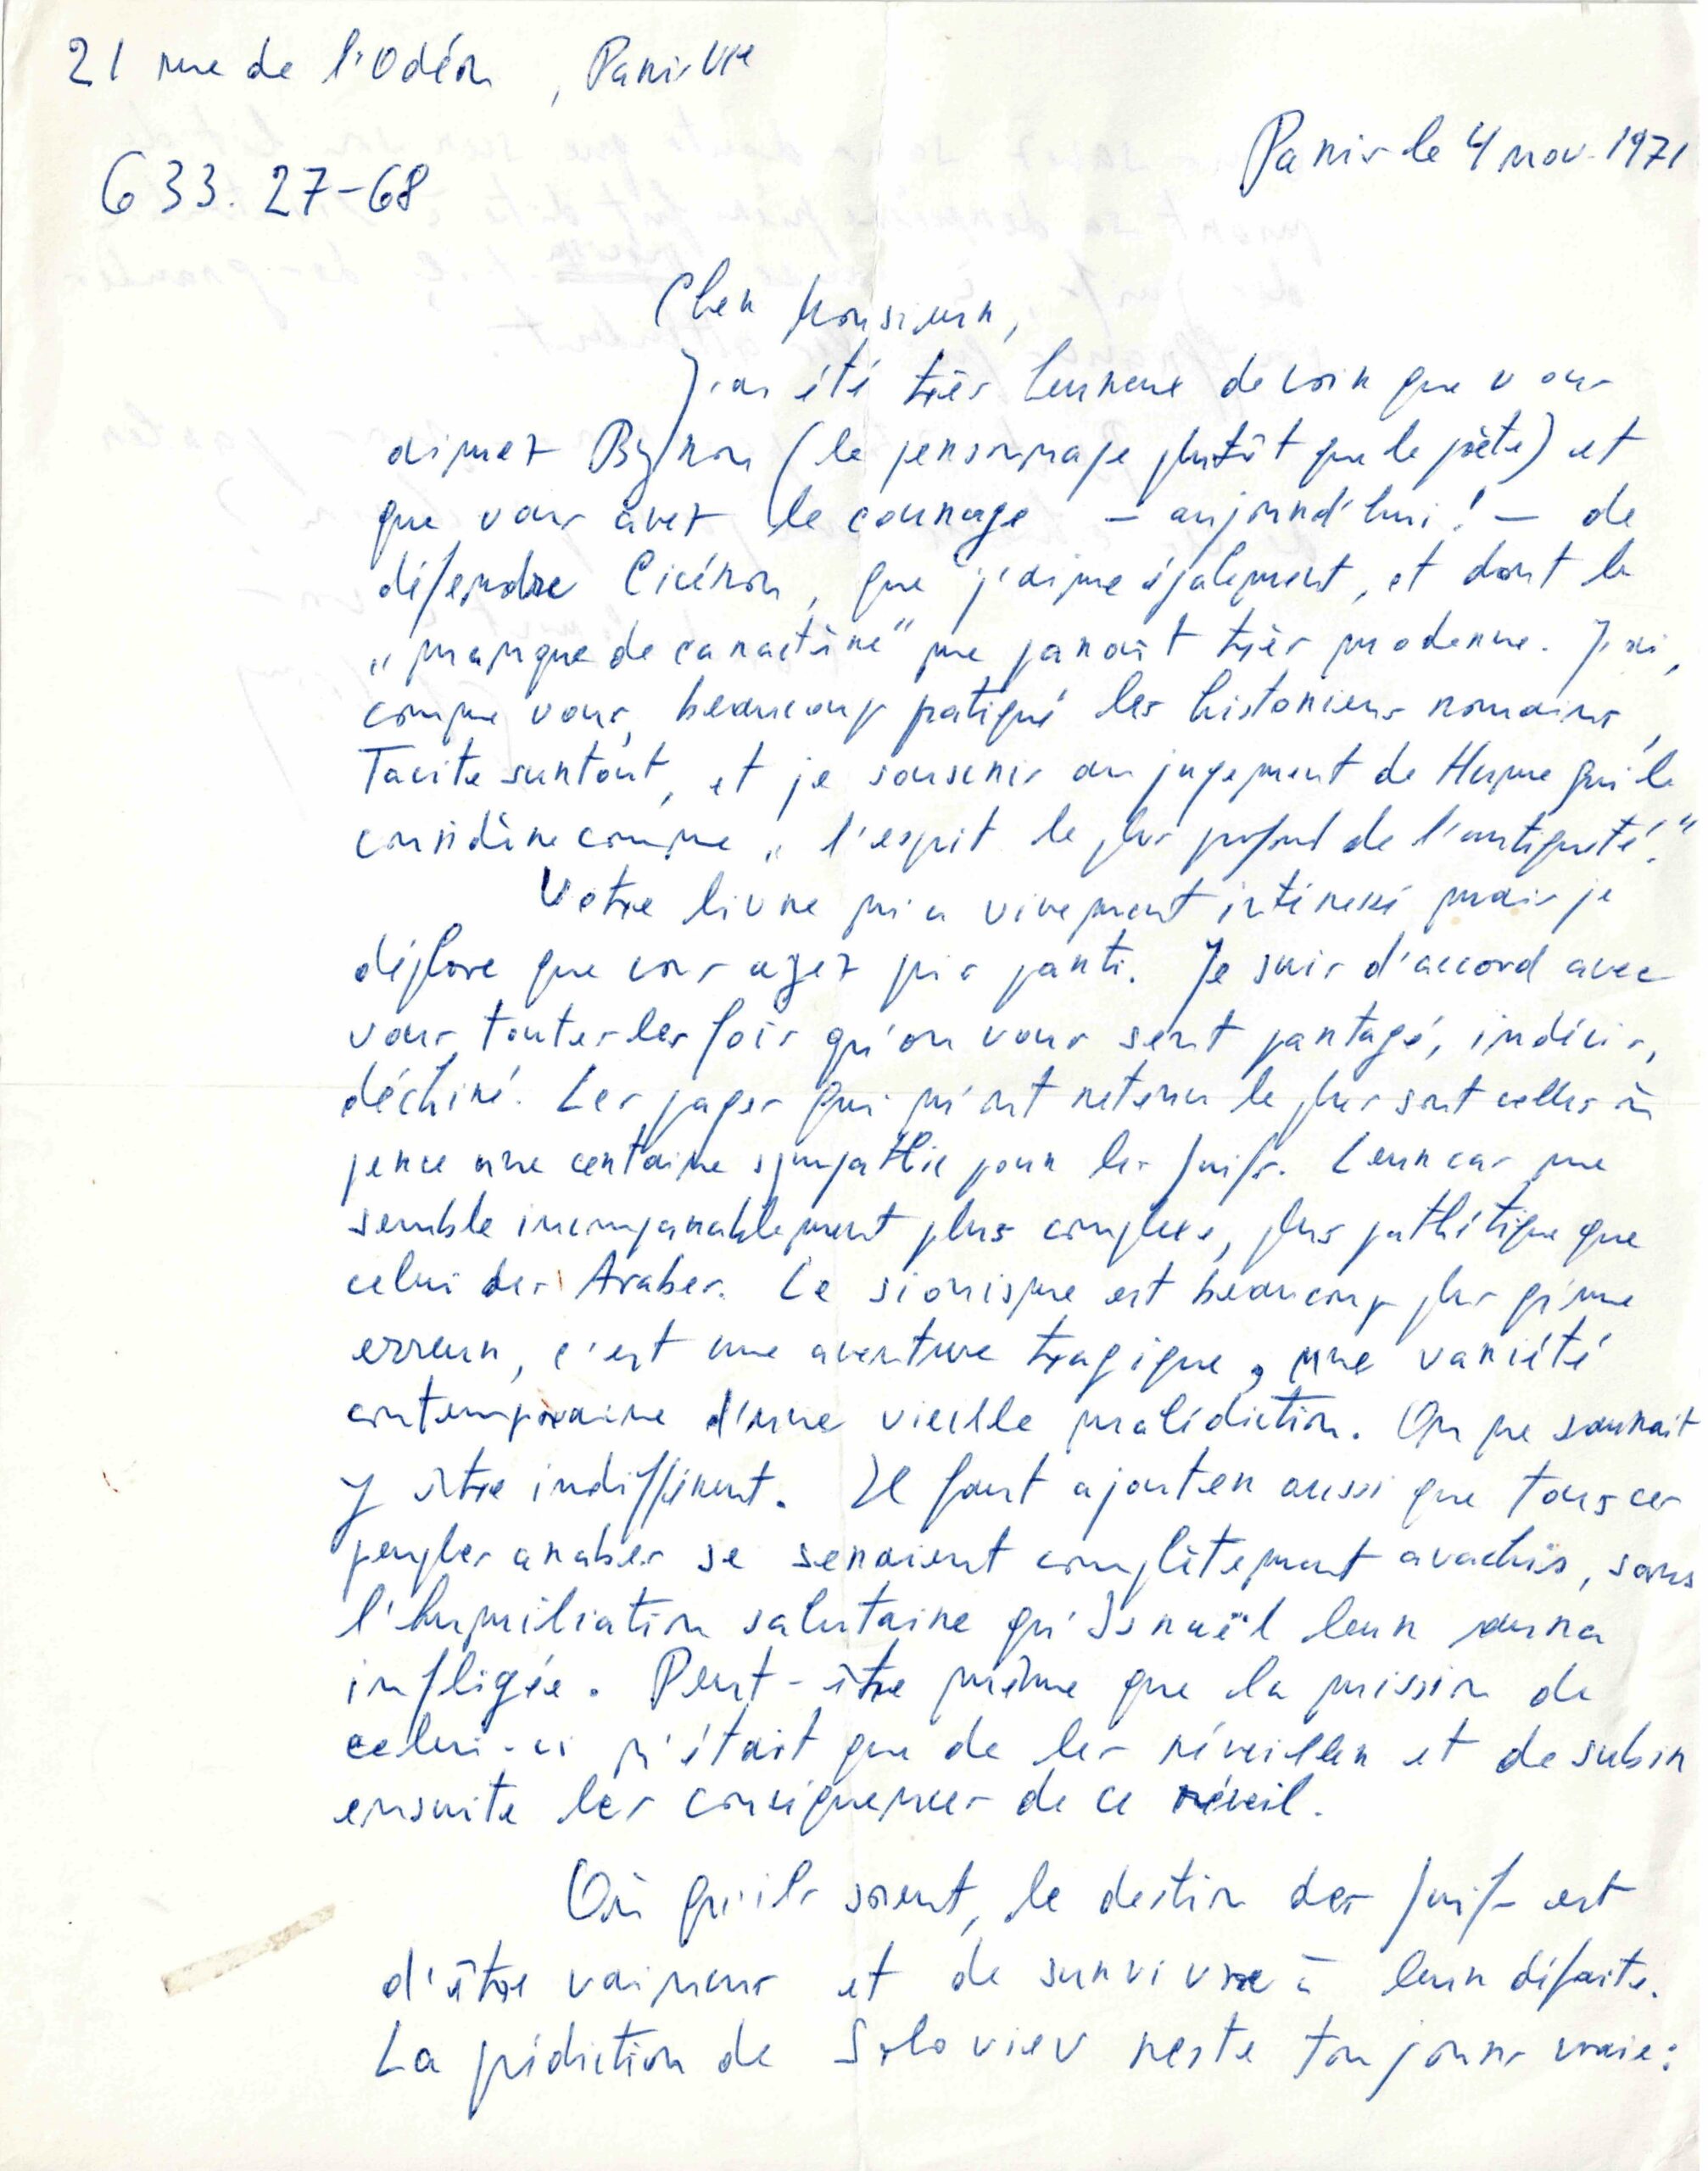 21 rue de l'Odéon, Paris VIe
Paris le 4 nov. 1971
633. 27-68
Cher Monsieur,
J'ai été très heureux de voir que vous
aimez Byron (le personnage plutôt que le poète) et
que vous avez le courage – aujourd'hui! – de
défendre Cicéron, que j'aime également, et dont le
„manque de caractère" me paraît très moderne. J'ai,
comme vous, beaucoup pratiqué les historiens romains,
Tacite surtout, et je souscris au jugement de Hume qui le
considère comme „l'esprit le plus profond de l'antiquité."
Votre livre m'a vivement intéressé mais je
déplore que vous ayez pris parti. Je suis d'accord avec
vous toutes les fois qu'on vous sent partagé, indécis,
déchiré. Les pages qui m'ont retenu le plus sont celles où
perce une certaine sympathie pour les Juifs. Leur cas me
semble incomparablement plus complexe, plus pathétique que
celui des Arabes. Le sionisme est beaucoup plus qu'une
erreur, c'est une aventure tragique, une variété
contemporaine d'une vieille malédiction. On ne saurait
y être indifférent. Il faut ajouter aussi que tous ces
peuples arabes se seraient complètement avachis, sans
l'humiliation salutaire qu'Israël leur aura
infligée. Peut-être même que la mission de
celui-ci n'était que de les réveiller et de subir
ensuite les conséquences de ce réveil.
Où qu'ils soient, le destin des Juifs est
d'être vaincus et de survivre à leur défaite.
La prédiction de Soloviev reste toujours vraie: